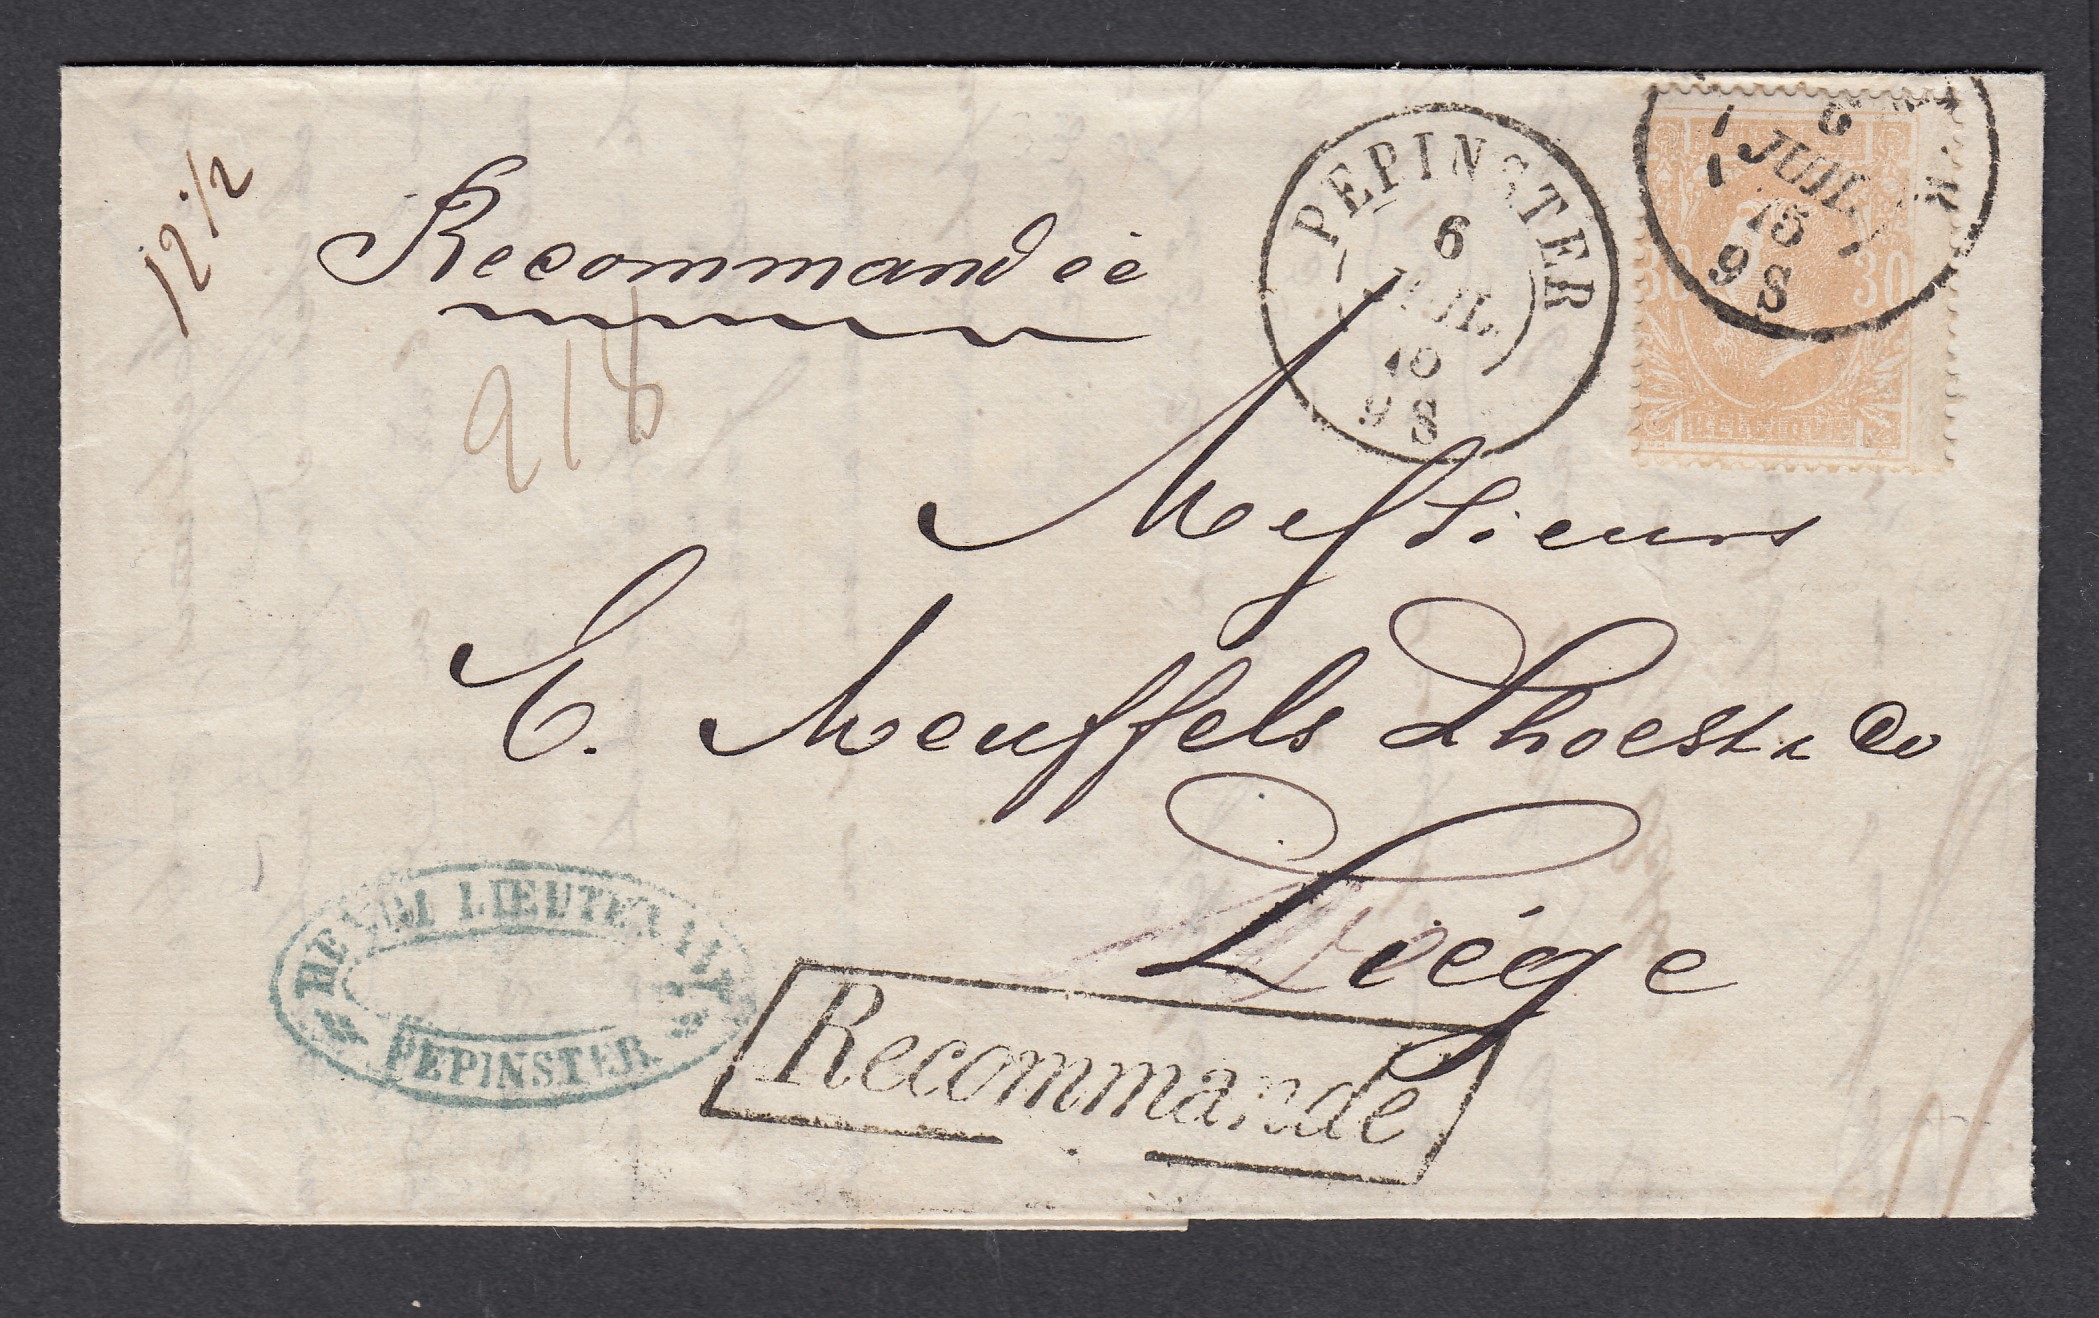 12 1/2
Recommandée
918
PEPINSTER
6
JUIL
10
9 S
6
JUIL
9 S
30 30
BELGIQUE
Messieurs
E. Meuffels Lhoest & Co
Liége
HENRI LIEUTENANT
PEPINSTER
Recommandé